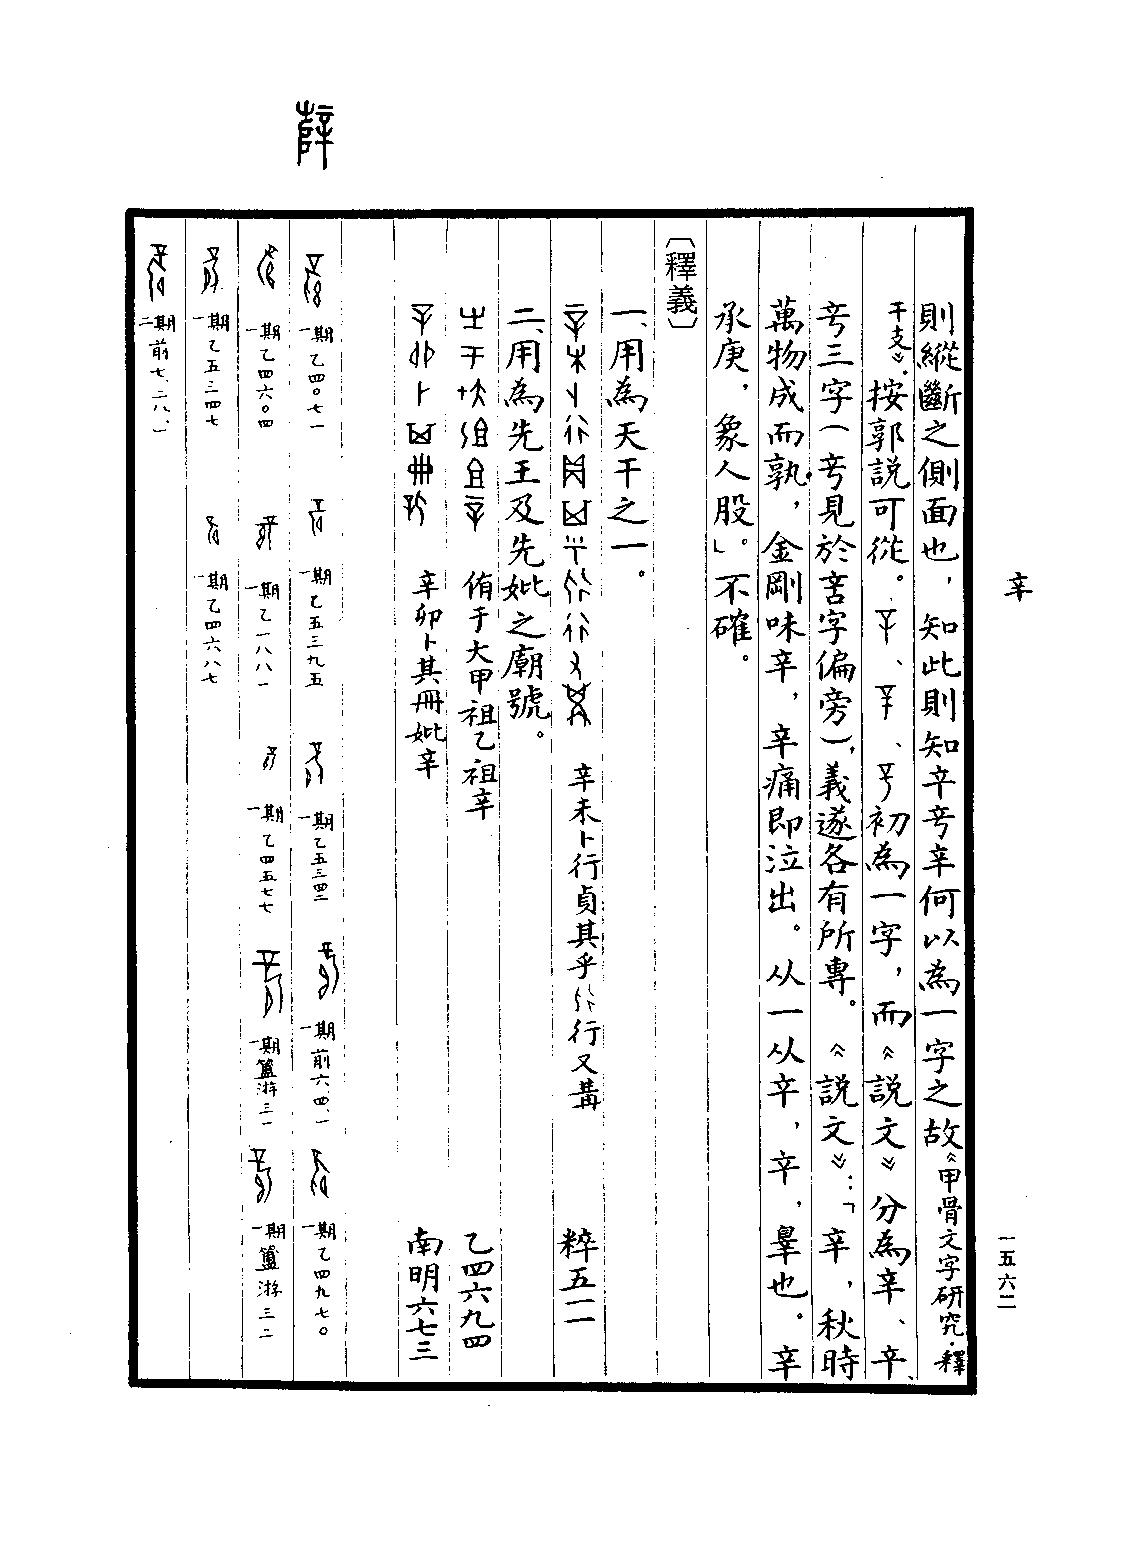 辛
一五六二
則縱斷之側面也，知此則知䇂䇂辛何以為一字之故《甲骨文字研究·釋
干支》。按郭說可從。初為一字，而《說文》分為辛、䇂、
三字（見於言字偏旁），義遂各有所專。《說文》：「辛，秋時
萬物成而孰，金剛味辛，辛痛即泣出。从一从䇂，䇂，辠也。辛
承庚，象人股。」不確。
〔釋義〕
一、用為天干之一。
辛未卜行貞其乎行又冓 粹五一一
二、用為先王及先妣之廟號。
侑于大甲祖乙祖辛 乙四六九四
辛卯卜其冊妣辛 南明六七三
薛
一期乙四〇七一 一期乙五三九五 一期乙五三四三 一期前六·四·一 一期乙四九七〇
一期乙四六〇四 一期乙一八八一 一期乙四五七七 一期簠游三一 一期簠游三二
一期乙五三四七 一期乙四六八七
二期前七·二八·一